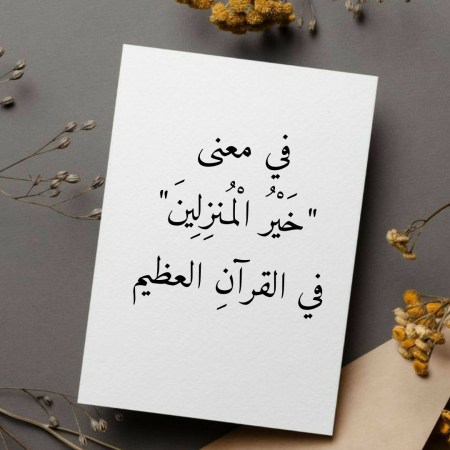 في معنى
"خَيْرُ الْمُنزِلِينَ"
في القرآنِ العظيم